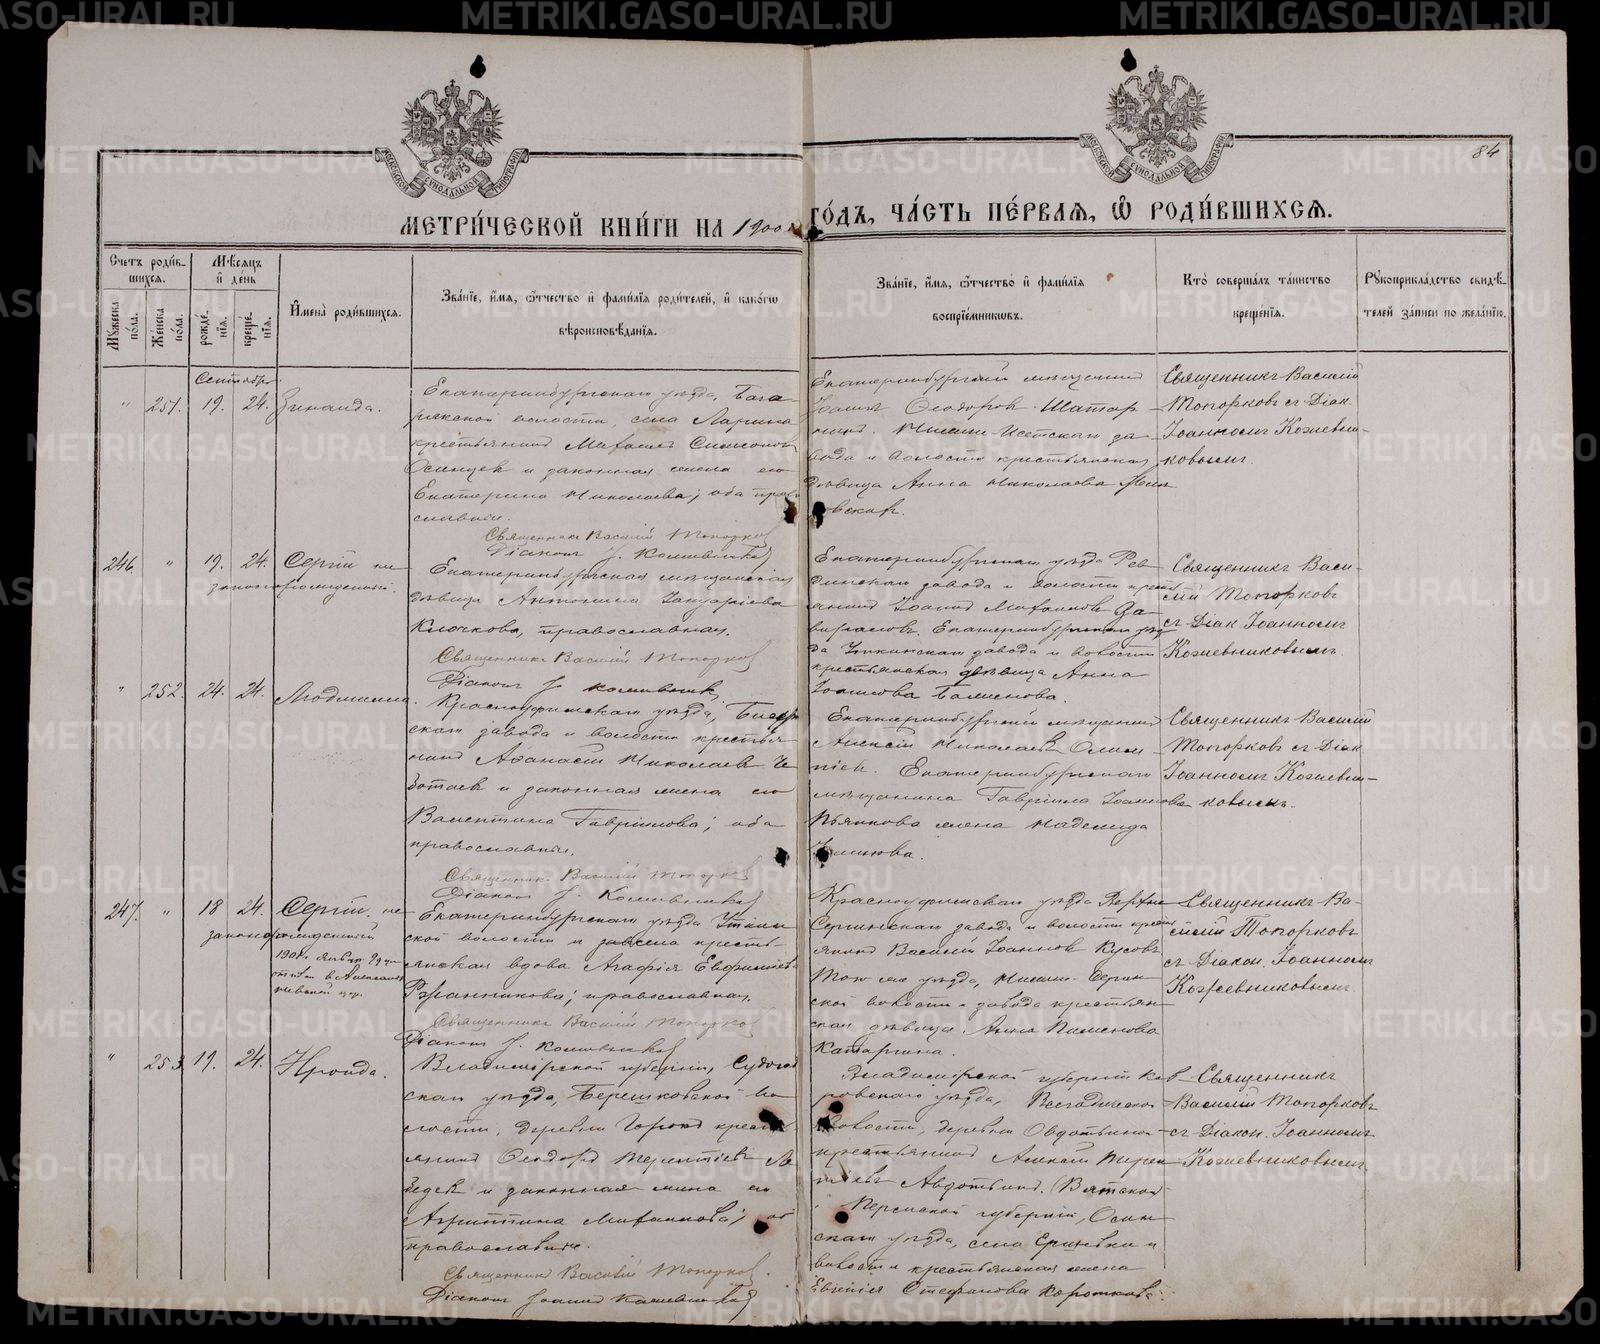 METRIKI.GASO-URAL.RU
84
МЕТРИ́ЧЕСКОЙ КНИ́ГИ НА 1900 ГО́ДЪ, ЧА́СТЬ ПЕ́РВАЯ, Ѡ РОДИ́ВШИХСЯ.
Счетъ роди́вшихся.
Мꙋжеска по́ла.
Же́нска по́ла.
Мѣ́сяцъ и де́нь
рожде́нїя.
креще́нїя.
И́мена̀ роди́вшихся.
Зва́нїе, и́мя, ѻ́тчество и фами́лїя роди́телей, и како́гѡ вѣроисповѣ́данїя.
Зва́нїе, и́мя, ѻ́тчество и фами́лїя воспрїе́мниковъ.
Кто̀ соверша́лъ та́инство креще́нїя.
Рꙋкоприкла́дство свидѣ́телей за́писи по жела́нїю.
Сентябрь.
" 251. 19. 24. Зинаида.
Екатеринбургскаго уѣзда, Бага
рякской волости, села Ларина
крестьянинъ Михаилъ Симеоновъ
Осинцев и законная жена его
Екатерина Николаева; оба право
славные.
Священникъ Василій Топорков
Діаконъ І. Кожевников
Екатеринбургскій мѣщанинъ
Іоаннъ Ѳеодоровъ
Нижне-Исетскаго за
вода и волости крестьянская
дѣвица Анна Николаева
Священникъ Василій
Топорковъ съ Діак.
Іоанномъ Кожевни-
ковымъ.
246. " 19. 24. Сергій не
законнорожденный.
Екатеринбургская мѣщанская
дѣвица Антонина
Клочкова, православная.
Священникъ Василій Топорков
Діаконъ І. Кожевников
Екатеринбургскаго уѣзда Рев
динскаго завода и волости кресть
янинъ Іоаннъ Михаиловъ
Екатеринбургскаго уѣз
да Уткинскаго завода и волости
крестьянская дѣвица Анна
Священникъ Васи-
лій Топорковъ
съ Діак. Іоанномъ
Кожевниковымъ.
" 252. 24. 24. Людмила.
Красноуфимскаго уѣзда, Бисерт
скаго завода и волости крестья
нинъ Аѳанасій Николаев Че
ботаев и законная жена его
Валентина Гавріилова; оба
православные.
Священникъ Василій Топорков
Діаконъ І. Кожевников
Екатеринбургскій мѣщанинъ
Алексій Николаев
Екатеринбургскаго
мѣщанина Гавріила Іоаннова
Пьянкова жена Надежда
Священникъ Василій
Топорковъ съ Діак.
Іоанномъ Кожевни-
ковымъ.
247. " 18 24. Сергій. не
законнорожденный
Екатеринбургскаго уѣзда Уткин
ской волости и завода кресть-
янская вдова Агафія
православная.
Священникъ Василій Топорков
Діаконъ І. Кожевников
Красноуфимскаго уѣзда Верхне
Сергинскаго завода и волости крест
янинъ Василій Іоаннов Кусовъ
Того же уѣзда, Нижне-Сергин
ской волости и завода крестьян
ская дѣвица Анна Пименова
Катаргина.
Священникъ Ва-
силій Топорковъ
съ Діакон. Іоанномъ
Кожевниковымъ.
" 253 19. 24. Ираида.
Владимірской губерніи, Судогод
скаго уѣзда, Берешковской во
лости, деревни крест
янинъ Ѳеодоръ Терентіевъ Ле
бедев и законная жена его
Агриппина Михаилова; об
православные.
Священникъ Василій Топорков.
Діаконъ Іоаннъ Кожевников
Владимірской губерніи Ков
ровскаго уѣзда,
волости, деревни
крестьянинъ Алексій Терен
тіевъ
Пермской губерніи, Осин
скаго уѣзда, села и
волости крестьянская жена
Евгенія Стефанова Короткова.
Священникъ
Василій Топорковъ
съ Діакон. Іоанномъ
Кожевниковымъ.